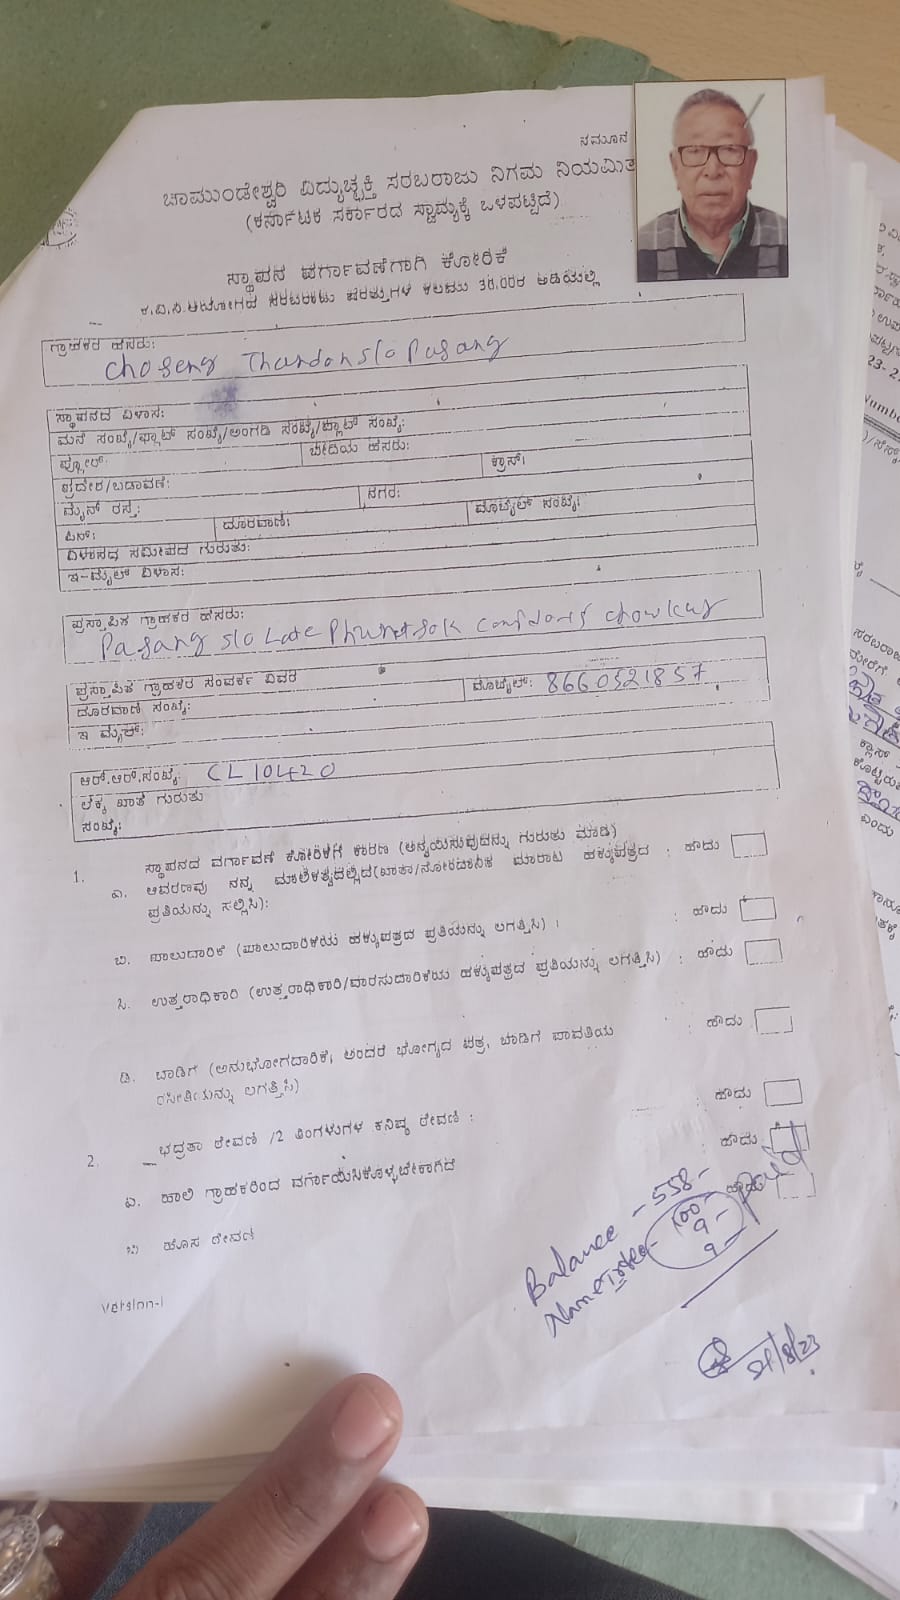 ನಮೂನ
ಚಾಮುಂಡೇಶ್ವರಿ ವಿದ್ಯುಚ್ಛಕ್ತಿ ಸರಬರಾಜು ನಿಗಮ ನಿಯಮಿತ
(ಕರ್ನಾಟಕ ಸರ್ಕಾರದ ಸ್ವಾಮ್ಯಕ್ಕೆ ಒಳಪಟ್ಟಿದೆ)
ಸ್ಥಾಪನ ವರ್ಗಾವಣೆಗಾಗಿ ಕೋರಿಕೆ
ಕ.ವಿ.ನಿ.ಆಯೋಗದ ಸರಬರಾಜು ಷರತ್ತುಗಳ ಕಲಮು 30.00ರ ಅಡಿಯಲ್ಲಿ
ಗ್ರಾಹಕರ ಹೆಸರು:
Pasang
ಸ್ಥಾಪನದ ವಿಳಾಸ:
ಮನೆ ಸಂಖ್ಯೆ/ಫ್ಲಾಟ್ ಸಂಖ್ಯೆ/ಅಂಗಡಿ ಸಂಖ್ಯೆ/ಪ್ಲಾಟ್ ಸಂಖ್ಯೆ:
ಫ್ಲೋರ್: ಬೀದಿಯ ಹೆಸರು:
ಪ್ರದೇಶ/ಬಡಾವಣೆ: ಕ್ರಾಸ್:
ಮೈನ್ ರಸ್ತೆ: ನಗರ:
ಪಿನ್: ದೂರವಾಣಿ: ಮೊಬೈಲ್ ಸಂಖ್ಯೆ:
ವಿಳಾಸದ ಸಮೀಪದ ಗುರುತು:
ಇ-ಮೈಲ್ ವಿಳಾಸ:
ಪ್ರಸ್ತಾಪಿತ ಗ್ರಾಹಕರ ಹೆಸರು:
Pasang s/o Late
ಪ್ರಸ್ತಾಪಿತ ಗ್ರಾಹಕರ ಸಂಪರ್ಕ ವಿವರ
ದೂರವಾಣಿ ಸಂಖ್ಯೆ: ಮೊಬೈಲ್: 8660521857
ಇ ಮೈಲ್:
ಆರ್.ಆರ್.ಸಂಖ್ಯೆ: CL10420
ಲೆಕ್ಕ ಖಾತೆ ಗುರುತು
ಸಂಖ್ಯೆ:
1. ಸ್ಥಾಪನದ ವರ್ಗಾವಣೆ ಕೋರಿಕೆಗೆ ಕಾರಣ (ಅನ್ವಯಿಸುವುದನ್ನು ಗುರುತು ಮಾಡಿ)
ಎ. ಆವರಣವು ನನ್ನ ಮಾಲಿಕತ್ವದಲ್ಲಿದೆ(ಖಾತಾ/ನೋಂದಾಣಿತ ಮಾರಾಟ ಹಕ್ಕುಪತ್ರದ : ಹೌದು
ಪ್ರತಿಯನ್ನು ಸಲ್ಲಿಸಿ):
ಬಿ. ಪಾಲುದಾರಿಕೆ (ಪಾಲುದಾರಿಕೆಯ ಹಕ್ಕುಪತ್ರದ ಪ್ರತಿಯನ್ನು ಲಗತ್ತಿಸಿ) : : ಹೌದು
ಸಿ. ಉತ್ತರಾಧಿಕಾರಿ (ಉತ್ತರಾಧಿಕಾರಿ/ವಾರಸುದಾರಿಕೆಯ ಹಕ್ಕುಪತ್ರದ ಪ್ರತಿಯನ್ನು ಲಗತ್ತಿಸಿ) : ಹೌದು
ಡಿ. ಬಾಡಿಗೆ (ಅನುಭೋಗದಾರಿಕೆ, ಅಂದರೆ ಭೋಗ್ಯದ ಪತ್ರ, ಬಾಡಿಗೆ ಪಾವತಿಯ : ಹೌದು
ರಸೀತಿಯನ್ನು ಲಗತ್ತಿಸಿ)
2. ಭದ್ರತಾ ಠೇವಣಿ /2 ತಿಂಗಳುಗಳ ಕನಿಷ್ಠ ಠೇವಣಿ : : ಹೌದು
ಎ. ಹಾಲಿ ಗ್ರಾಹಕರಿಂದ ವರ್ಗಾಯಿಸಿಕೊಳ್ಳಬೇಕಾಗಿದೆ : ಹೌದು
ಬಿ ಹೊಸ ಠೇವಣಿ ಹೌದು
Balance - 558-
100-
9-
9-
paid
Version-I